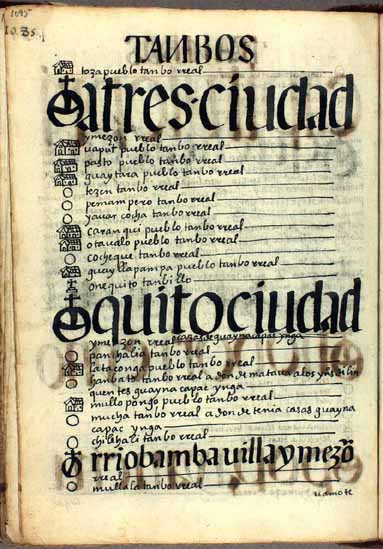 1095
1085
TANBOS
toza pueblo tanbo rreal
atres ciudad
y mezon rreal
uaput pueblo tanbo rreal
pasto pueblo tanbo rreal
guaytara pueblo tanbo rreal
tezen tanbo rreal
penampero tanbo rreal
yauar cocha tanbo rreal
caran qui pueblo tanbo rreal
otaualo pueblo tanbo rreal
cocheque tanbo rreal
guayllapanpa pueblo tanbo rreal
onequito tanbillo
quito ciudad
y mezon rreal cazas de guaynacapac ynga
panchalia tanbo rreal
lataconga pueblo tanbo rreal
hanbato tanbo rreal a don de mataua a los yn
quentes guayna capac ynga
mullo pongo pueblo tanbo rreal
mucha tanbo rreal a don de tenia casas guayna
capac ynga
chilihali tanbo rreal
rriobamba uilla y mezō
rreal
mullaca tanbo rreal